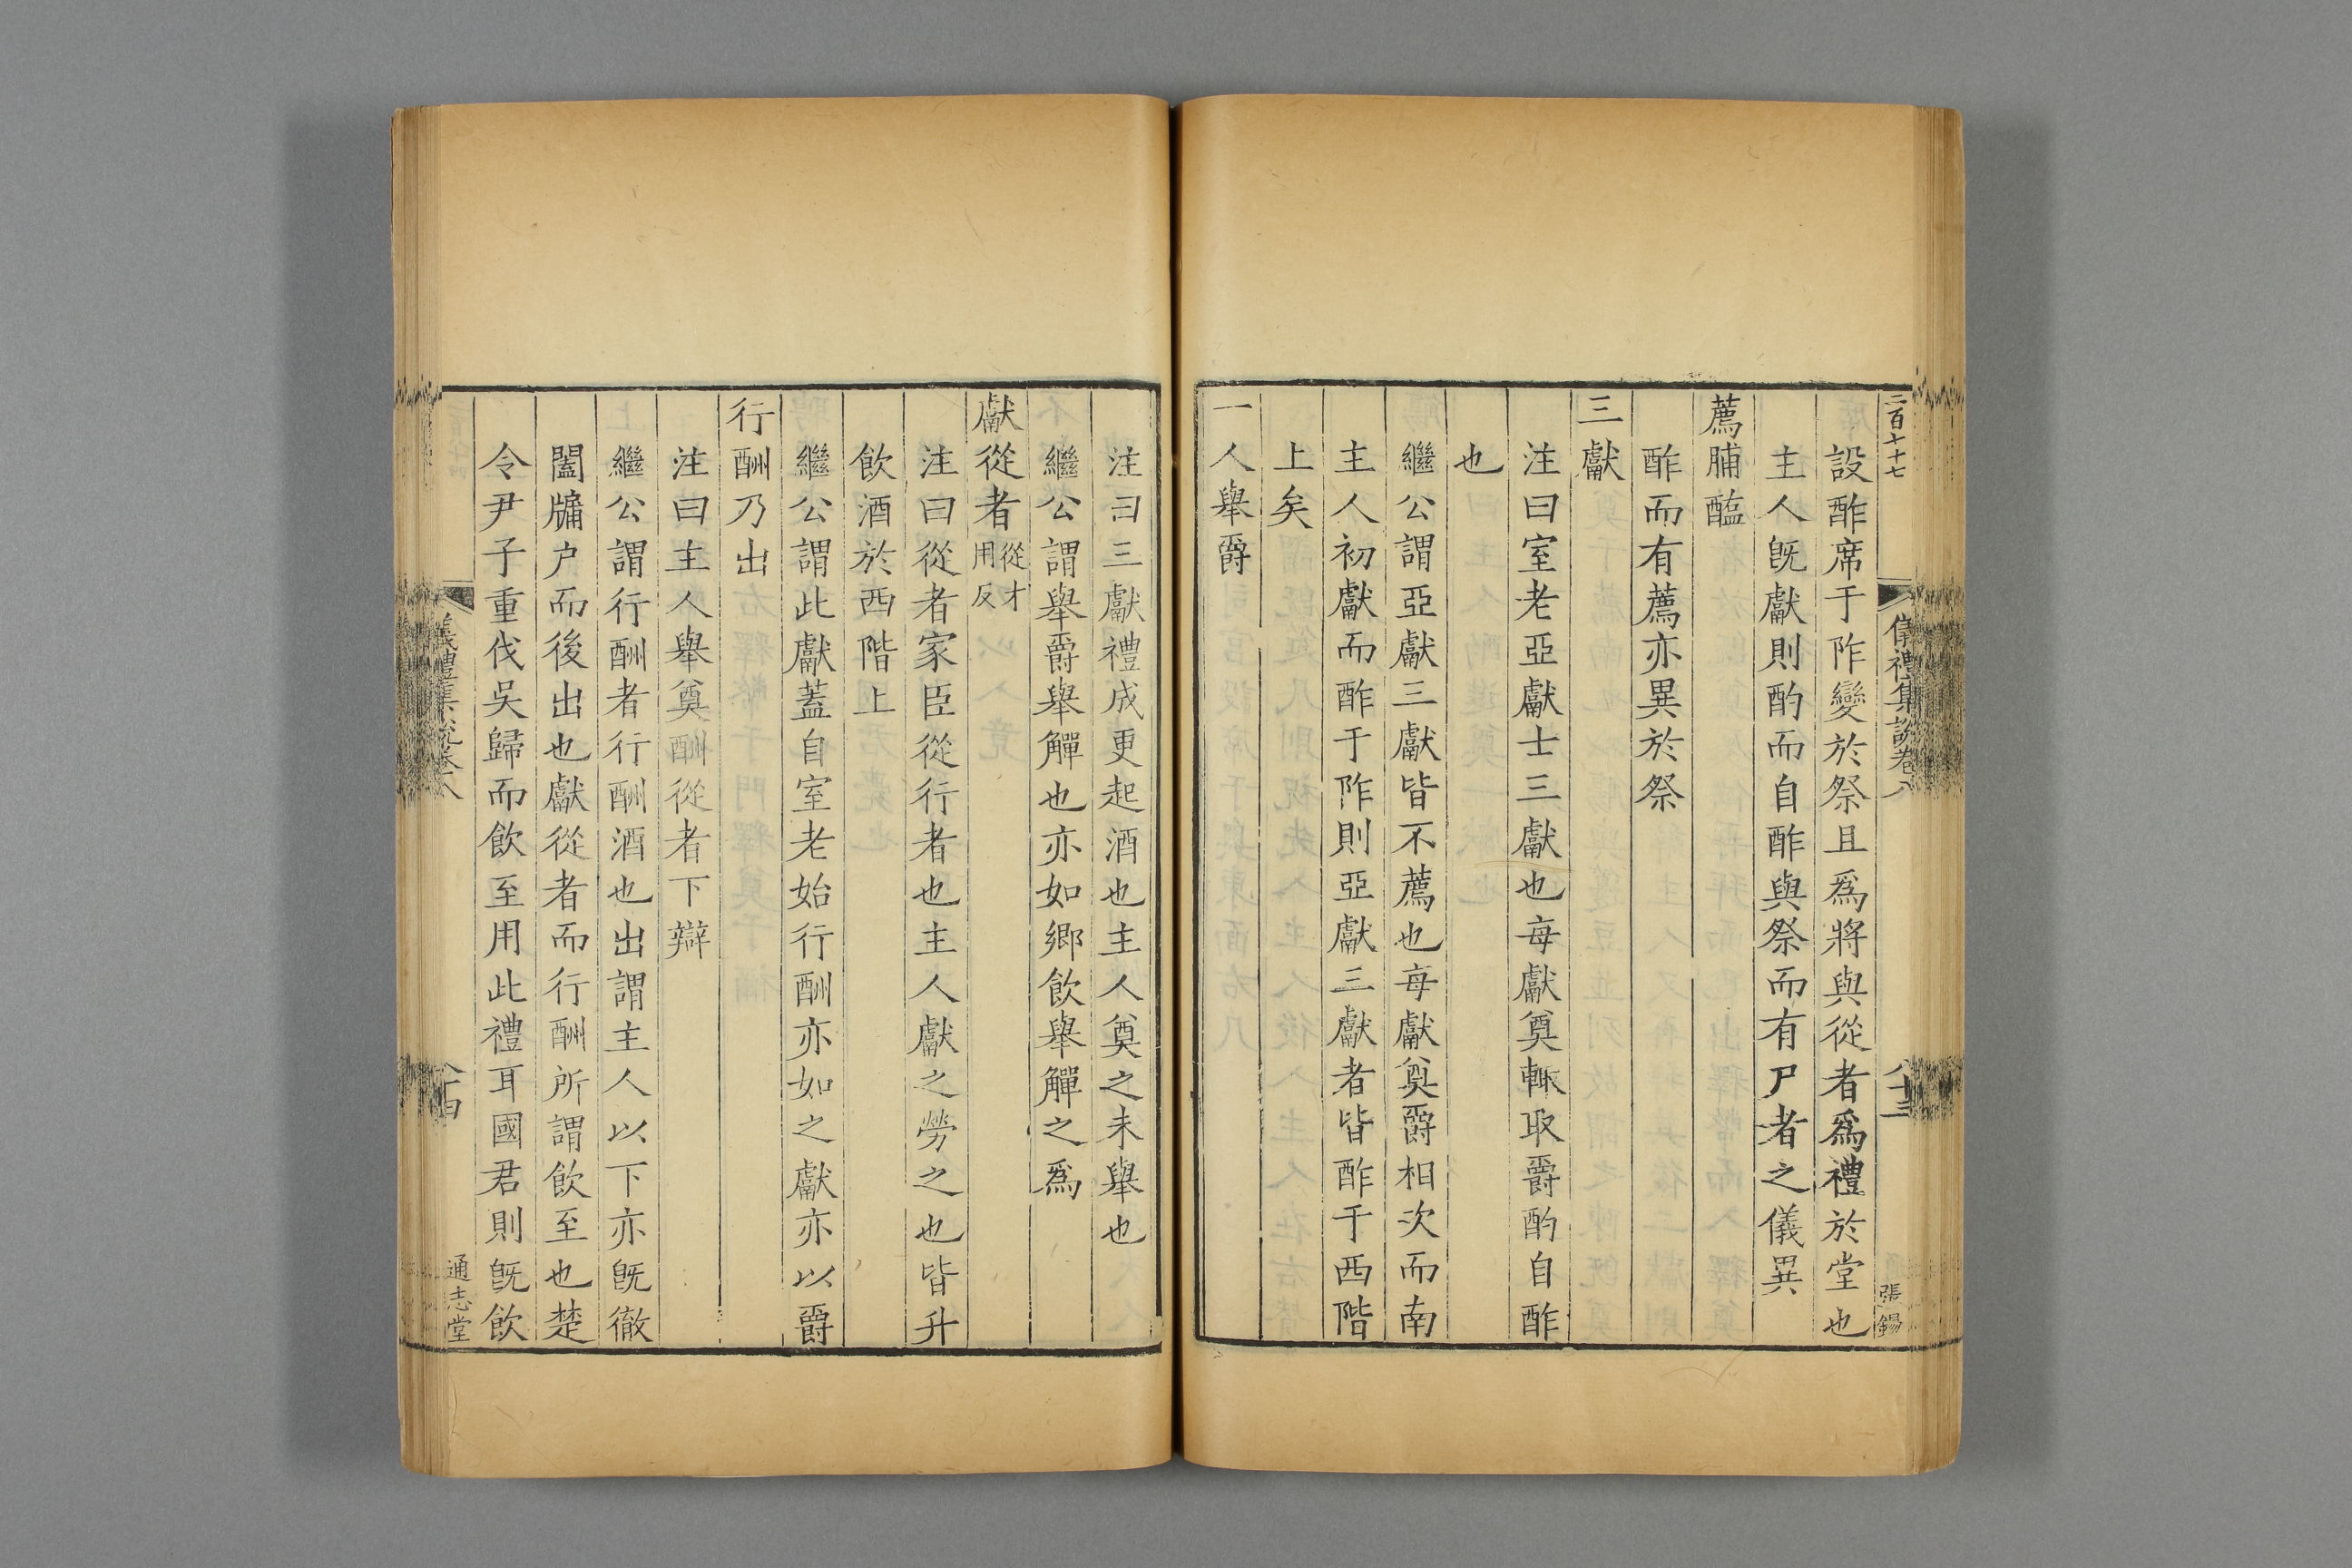 二百十十七
儀禮集說卷八
八十三
張錫
設酢席于阼變於祭且爲將與從者爲禮於堂也
主人旣獻則酌而自酢與祭而有尸者之儀異
薦脯醢
酢而有薦亦異於祭
三獻
注曰室老亞獻士三獻也每獻奠輙取爵酌自酢
也
繼公謂亞獻三獻皆不薦也每獻奠爵相次而南
主人初獻而酢于阼則亞獻三獻者皆酢于西階
上矣
一人舉爵
注曰三獻禮成更起酒也主人奠之未舉也
繼公謂舉爵舉觶也亦如鄉飮舉觶之爲
獻從者從才用反
注曰從者家臣從行者也主人獻之勞之也皆升
飮酒於西階上
繼公謂此獻蓋自室老始行酬亦如之獻亦以爵
行酬乃出
注曰主人舉奠酬從者下辯
繼公謂行酬者行酬酒也出謂主人以下亦旣徹
闔牖户而後出也獻從者而行酬所謂飮至也楚
令尹子重伐吳歸而飮至用此禮耳國君則旣飮
儀禮集說卷八
八十四
通志堂